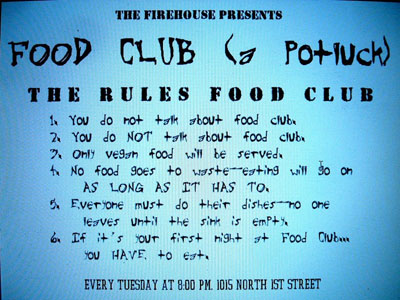 THE FIREHOUSE PRESENTS
FOOD CLUB (a Potluck)
THE RULES FOOD CLUB
1. You do not talk about food club.
2. You do NOT talk about food club.
3. Only vegan food will be served.
4. No food goes to waste--eating will go on
AS LONG AS IT HAS TO.
5. Everyone must do their dishes--no one
leaves until the sink is empty.
6. If it's your first night at Food Club...
you HAVE to eat.
EVERY TUESDAY AT 8:00 PM. 1015 NORTH 1ST STREET